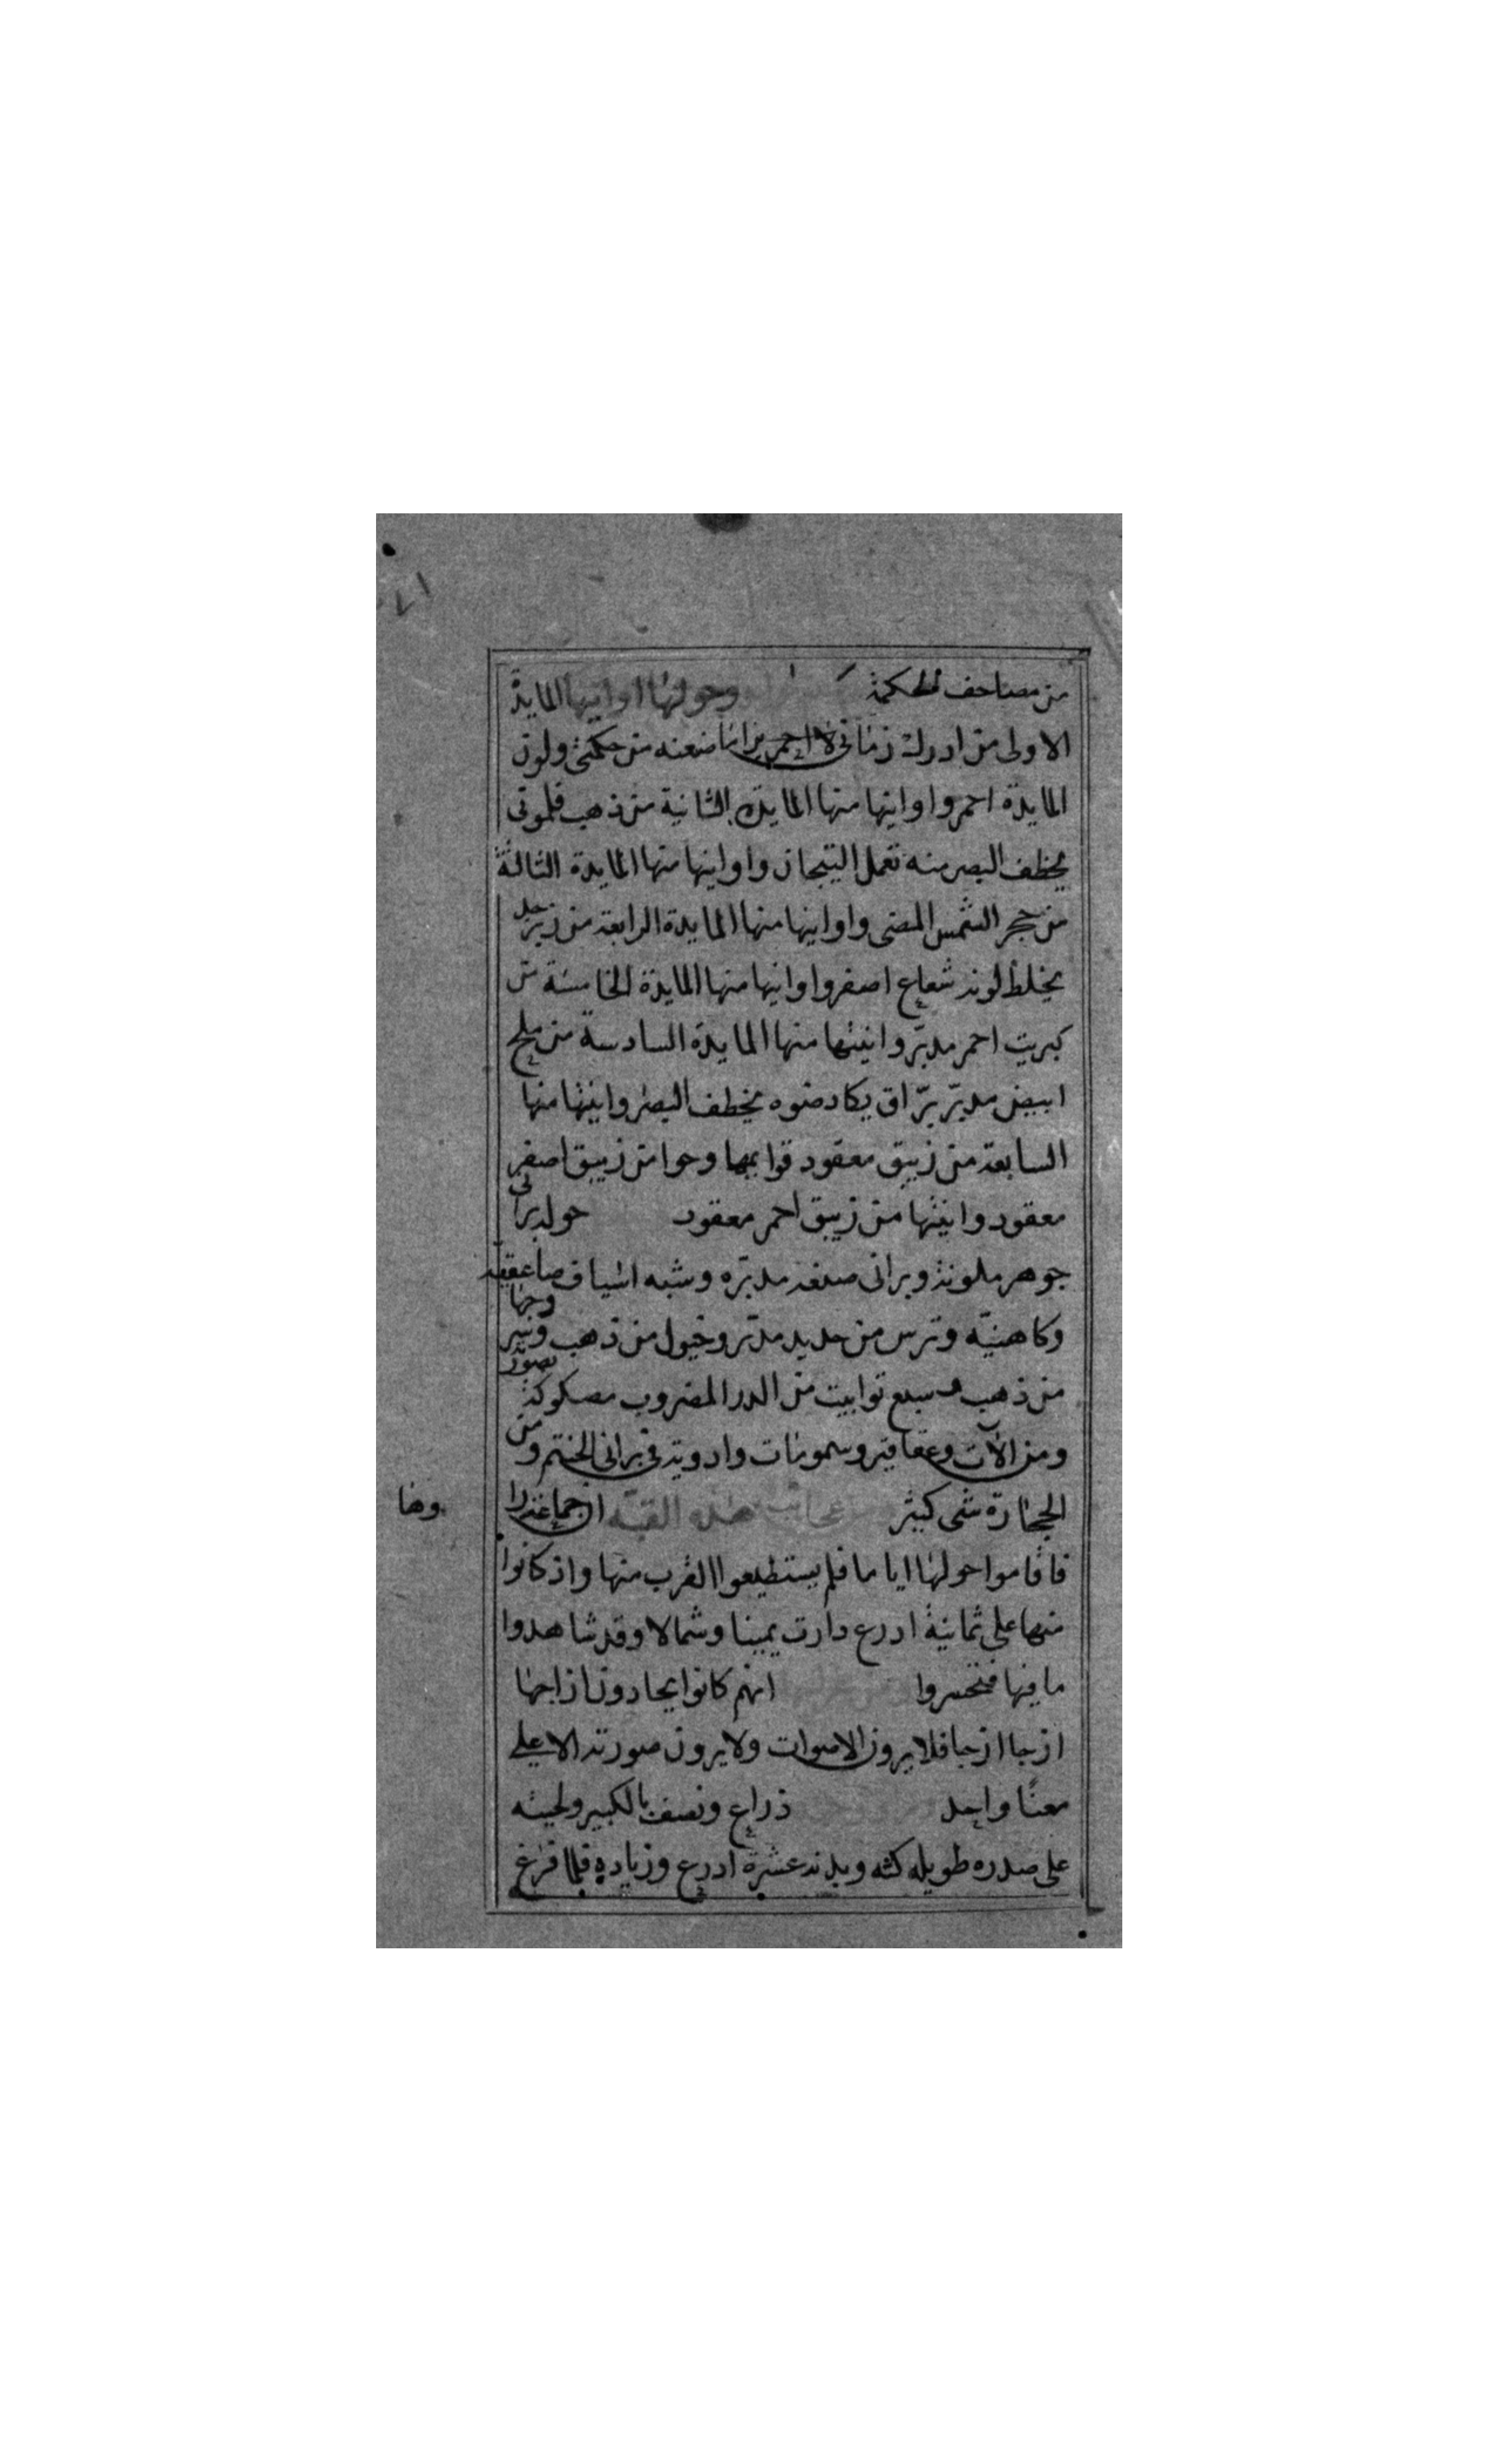 من مصاحف الحكمة وحولها اوانيها المايدة
الاولى من ادرك زماني احمر براسا ضعنه من حكمتي ولون
المايدة احمر واوانيها منها المايدة الثانية من ذهب قلموني
يخطف البصر منه تعمل التيجان واوانيها منها المايدة الثالثة
من حجر الشمس المضى واوانيها منها المايدة الرابعة من زبرجد
يخلط لونه شعاع اصفر واوانيها منها المايدة الخامسة من
كبريت احمر مدبّر وانيتها منها المايدة السادسة من ملح
ابيض مدبّر برّاق يكاد ضوه يخطف البصر وانيتها منها
السابعة من زيبق معقود قوايمها وحوا من زيبق اصفر
معقود وانيتها من زيبق احمر معقود حوله براني
جوهر ملونة وبرانى صنعه مدبّره وشبه اسياف صاعقيّه
وكاهنيّه وترس من حديد مدبّر وخيول من ذهب وسروجها
من ذهب وسبع توابيت من الدر المضروب مصكوكة بصورة
ومن الآت وعقاقير وسمومات وادوية في براني الختم ومن
الحجارة شى كثير عجائب هذه القبّه ان جماعة راوها
فاقاموا حولها اياما فلم يستطيعوا القرب منها واذ كانوا
منها على ثمانية اذرع دارت يمينا وشمالا وقد شاهدوا
ما فيها فتحسروا انهم كانوا يحادون ازاجها
ازجا ازجا فلا يرون الاصوات ولا يرون صورته الا على
معنًا واحد ذراع ونصف بالكبير ولحيته
على صدره طويله كثه وبدنه عشرة اذرع وزيادة فلما فرغ